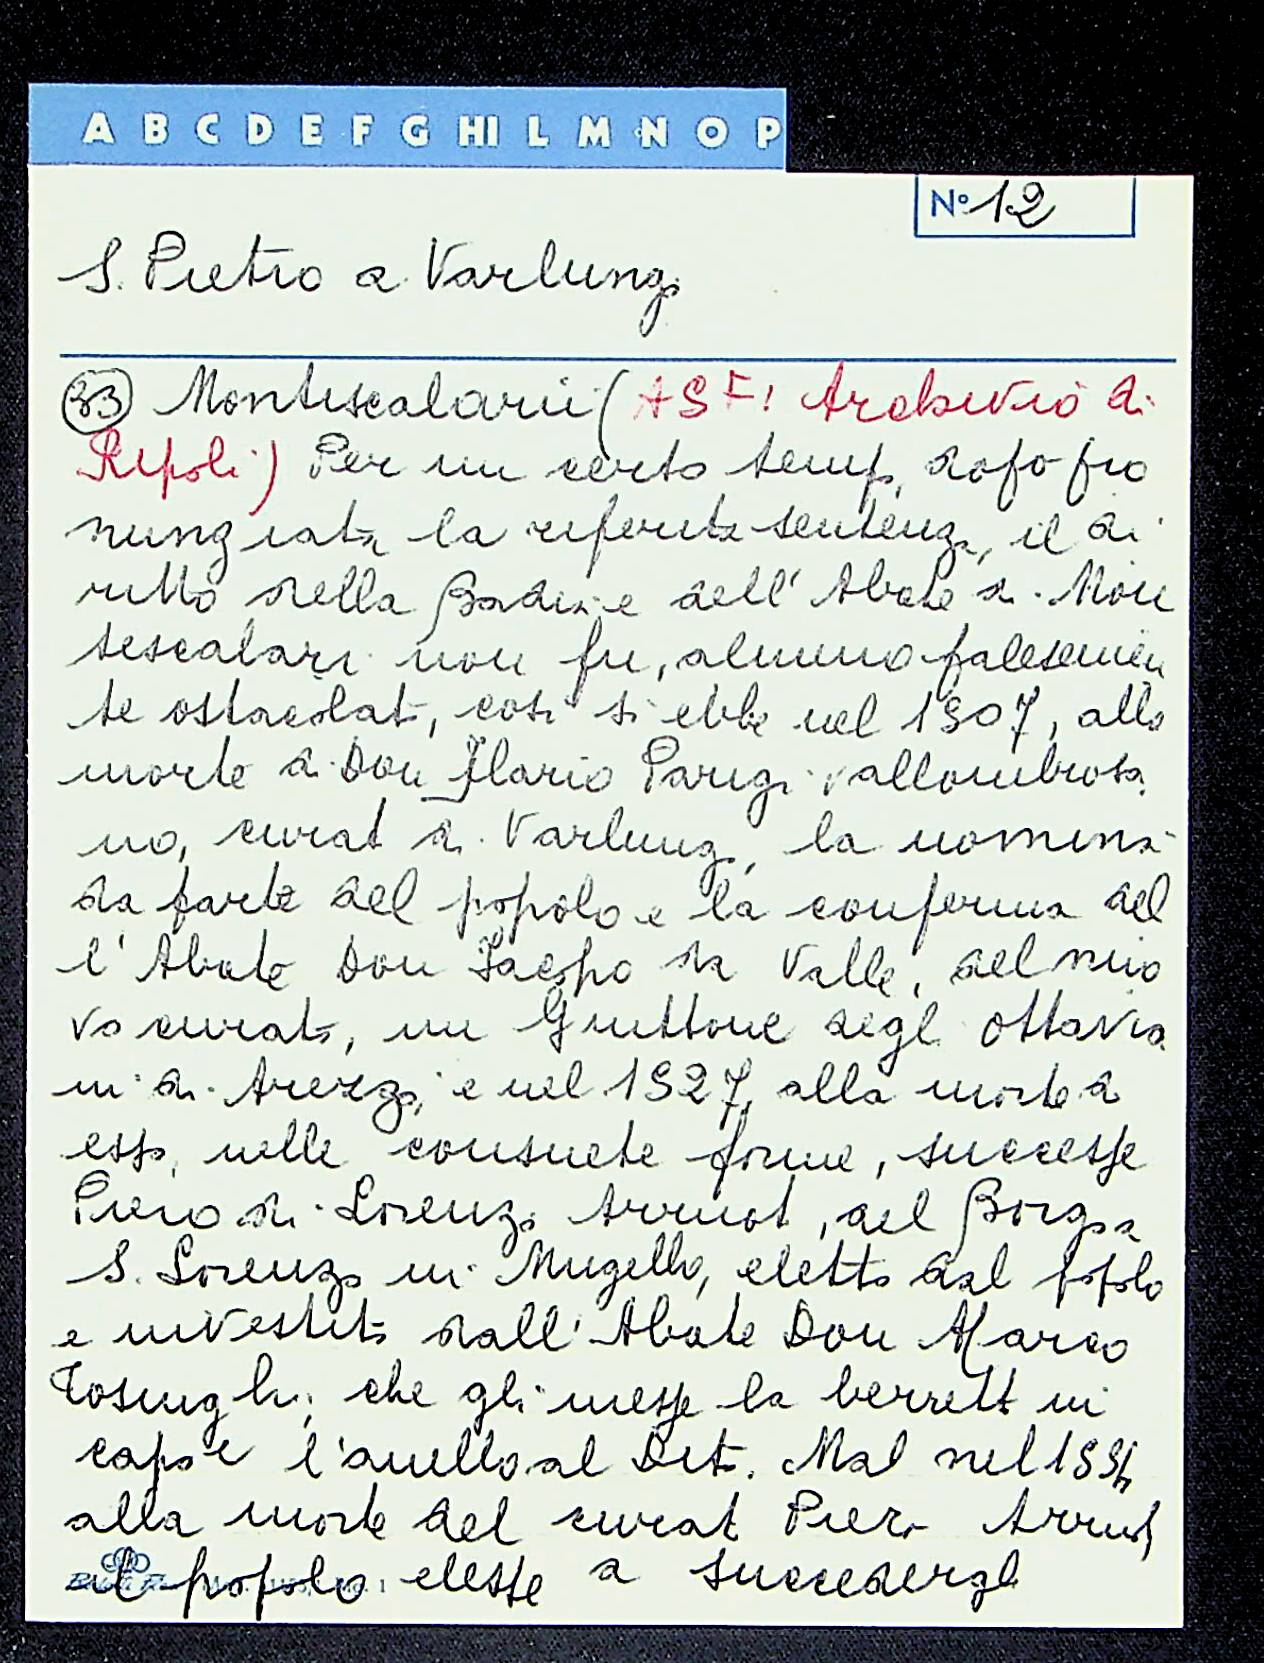 A B C D E F G HI L M N O P
N° 12
S. Pietro a Varlungo
(33) Montiscalarii (ASF! Archivio di
Ripoli) Per un certo tempo, dopo pro
nunziata la riferita sentenza, il di
ritto della Badia e dell' Abate di Mon
tescalari non fu, almeno palesemen
te ostacolato, così si ebbe nel 1507, alla
morte di Don Ilario Parigi vallombrosa
no, curato di Varlungo, la nomina
da parte del popolo e la conferma del
l'Abate Don Jacopo da Valle, del nuo
vo curato, un Guittone degli Ottavia
ni di Arezzo; e nel 1527, alla morte di
esso, nelle consuete forme, successe
Piero di Lorenzo, del Borgo a
S. Lorenzo in Mugello, eletto dal popolo
e investito dall' Abate Don Marco
Tosinghi, che gli messe la berretta in
capo e l'anello al Dito. Mal nel
alla morte del curato Piero
il popolo elesse a succedergli